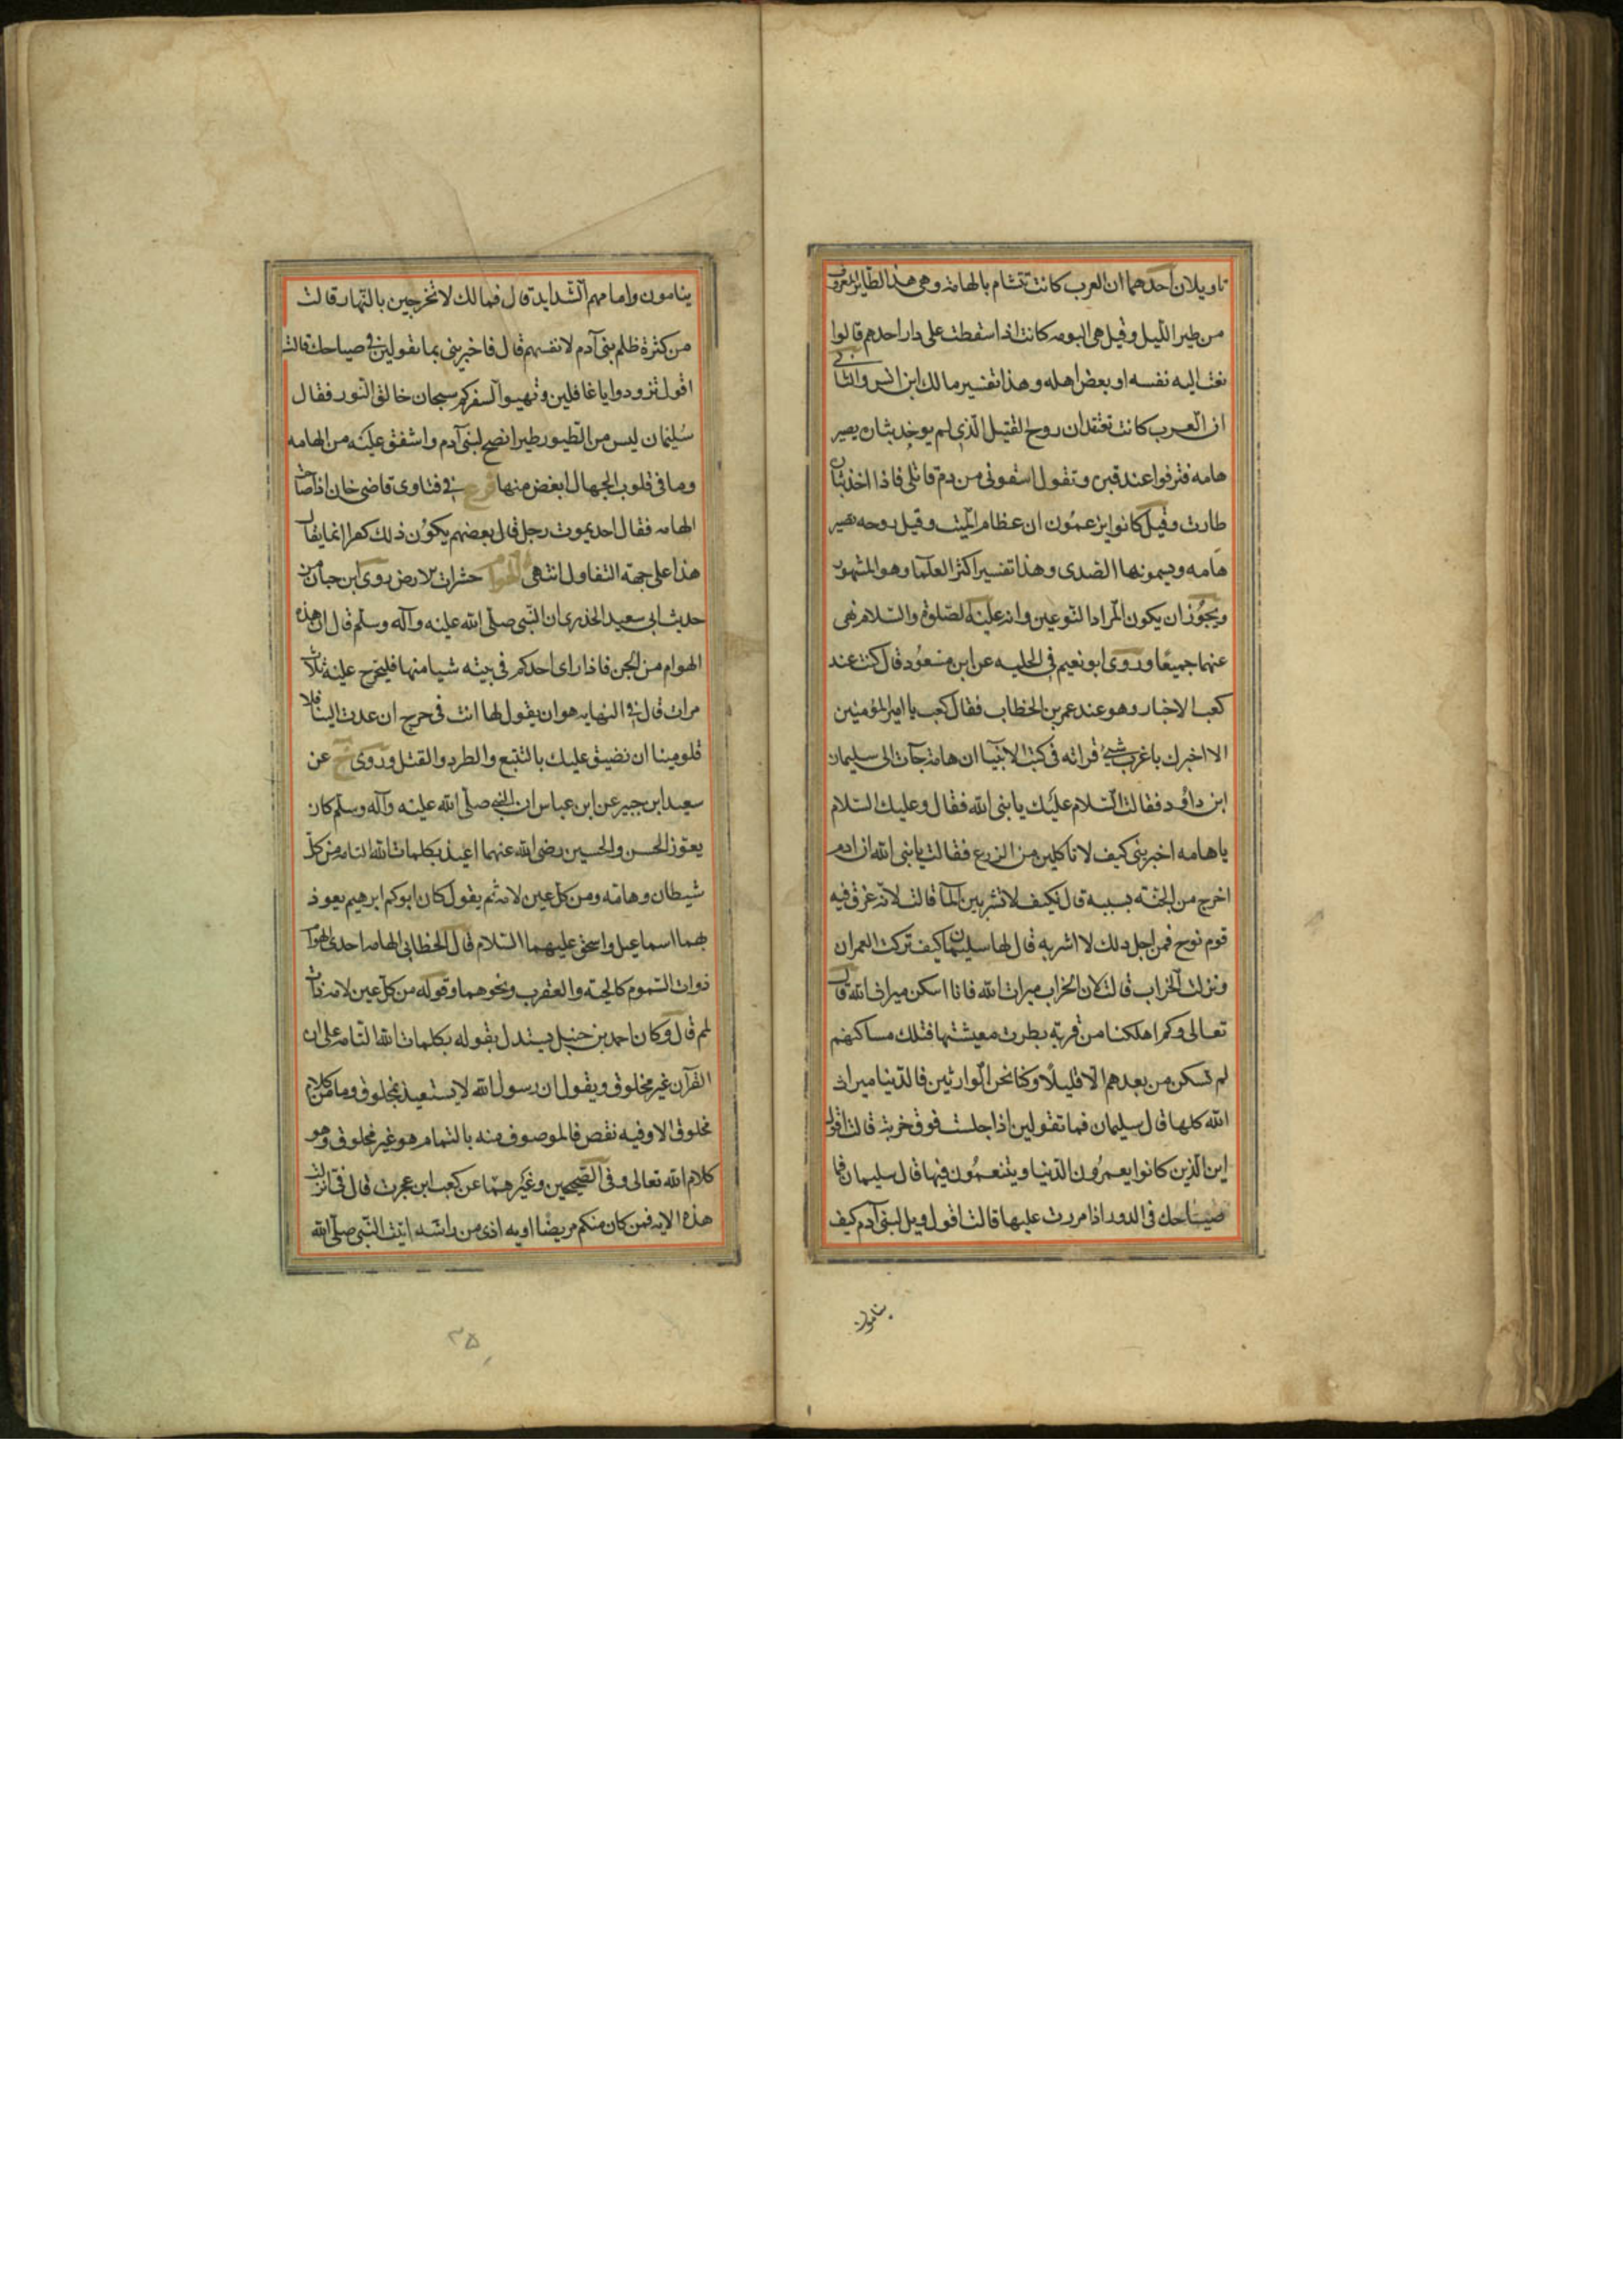 تاويلان احدهما ان العرب كانت تتشام بالهامة وهى هذا الطاير المعروف
من طير الليل وقيل هى البومه كانت اذا سقطت على دار احدهم قالوا
نعت اليه نفسه او بعض اهله وهذا تفسير مالك ابن انس والثانى
ان العرب كانت تعتقد ان روح القتيل الذى لم يوخد بثاره يصير
هامه فتزقوا عند قبره وتقول اسقونى من دم قاتلى فاذا اخذ بثاره
طارت وقيل كانوا يزعمون ان عظام الميت وقيل روحه تصير
هامه ويسمونها الصدى وهذا تفسير اكثر العلما وهو المشهور
ويجوز ان يكون المراد النوعين وانه عليه الصلوة والسلام نهى
عنهما جميعا وروى ابو نعيم فى الحليه عن ابن مسعود قال كنت عند
كعب الاخبار وهو عند عمر بن الخطاب فقال كعب يا امير المؤمنين
الا اخبرك باغرب شئ قراته فى كتب الانبيا ان هامة جآت الى سليمان
ابن داؤد فقالت السلام عليك يا بنى الله فقال وعليك السلام
يا هامه اخبرينى كيف لا تاكلين من الزرع فقالت يا بنى الله ان ادم
اخرج من الجنة بسببه قال فكيف لا تشربين المآ قالت لانه غرق فيه
قوم نوح فمن اجل ذلك لا اشربه قال لها سليمان كيف تركت العمران
ونزلت الخراب قالت لان الخراب ميراث الله فانا اسكن ميراث الله قال
تعالى وكم اهلكنا من قرية بطرت معيشتها فتلك مساكنهم
لم تسكن من بعدهم الا قليلا وكنا نحن الوارثين فالدنيا ميراث
الله كلها قال سليمان فما تقولين اذا جلست فوق خربة قالت اقول
اين الذين كانوا يعمرون الدنيا ويتنعمون فيها قال سليمان فما
صياحك فى الدور اذا مررت عليها قالت اقول ويل لبنى آدم كيف
ينامون
ينامون وامامهم الشدايد قال فمالك لا تخرجين بالنهار قالت
من كثرة ظلم بنى آدم لانفسهم قال فاخبرينى بما تقولين فى صياحك قالت
اقول تزودوا يا غافلين وتهيوا لسفركم سبحان خالق النور فقال
سليمان ليس من الطيور طير انصح لبنى آدم واشفق عليه من الهامه
وما فى قلوب الجهال ابغض منها فرع فى فتاوى قاضى خان اذا صاحت
الهامه فقال احد يموت رجل قال بعضهم يكون ذلك كفرا انما يقال
هذا على جهة التفاول انتهى الهوام حشرات الارض روى ابن حبان من
حديث ابى سعيد الخذرى ان النبى صلى الله عليه وآله وسلم قال ان هذه
الهوام من الجن فاذا راى احدكم فى بيته شيا منها فليحرج عليه ثلاث
مرات قال فى النهايه هو ان يقول لها انت فى حرج ان عدت الينا فلا
تلومينا ان نضيق عليك بالتتبع والطرد والقتل وروى خ عن
سعيد ابن جبير عن ابن عباس ان النبى صلى الله عليه وآله وسلم كان
يعوذ الحسن والحسين رضى الله عنهما اعيذ بكلمات الله التامه من كل
شيطان وهامة ومن كل عين لامة ثم يقول كان ابوكم ابرهيم يعوذ
بهما اسماعيل واسحق عليهما السلام قال الخطابى الهامه احدى الهوام
ذوات السموم كالحية والعقرب ونحوهما وقوله من كل عين لامة ذات
لم قال وكان احمد بن حنبل يستدل بقوله بكلمات الله التامه على ان
القرآن غير مخلوق ويقول ان رسول الله لا يستعيذ بمخلوق وما من كلام
مخلوق الا وفيه نقص فالموصوف منه بالتمام هو غير مخلوق وهو
كلام الله تعالى وفى الصحيحين وغيرهما عن كعب ابن عجرت قال فى انزلت
هذه الايه فمن كان منكم مريضا او به اذى من راسه اتيت النبى صلى الله
٣٥